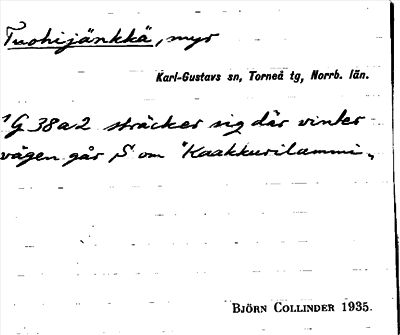 Tuohijänkkä, myr
Karl-Gustavs sn, Torneå tg, Norrb. län.
G 38a2 sträcker sig där vinter
vägen går S om "Kaakkurilammi".
BJÖRN COLLINDER 1935.